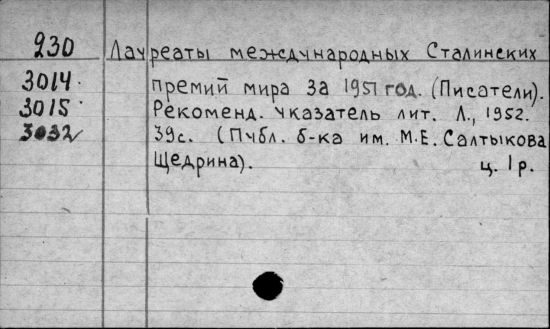 230 Лауреаты международных Сталинских
3014 премий мира за 1951 год. (Писатели).
3015 Рекоменд. указатель лит. Л., 1952.
3032 39с. (Публ. б-ка им. М.Е. Салтыкова
Щедрина). ц. 1р.